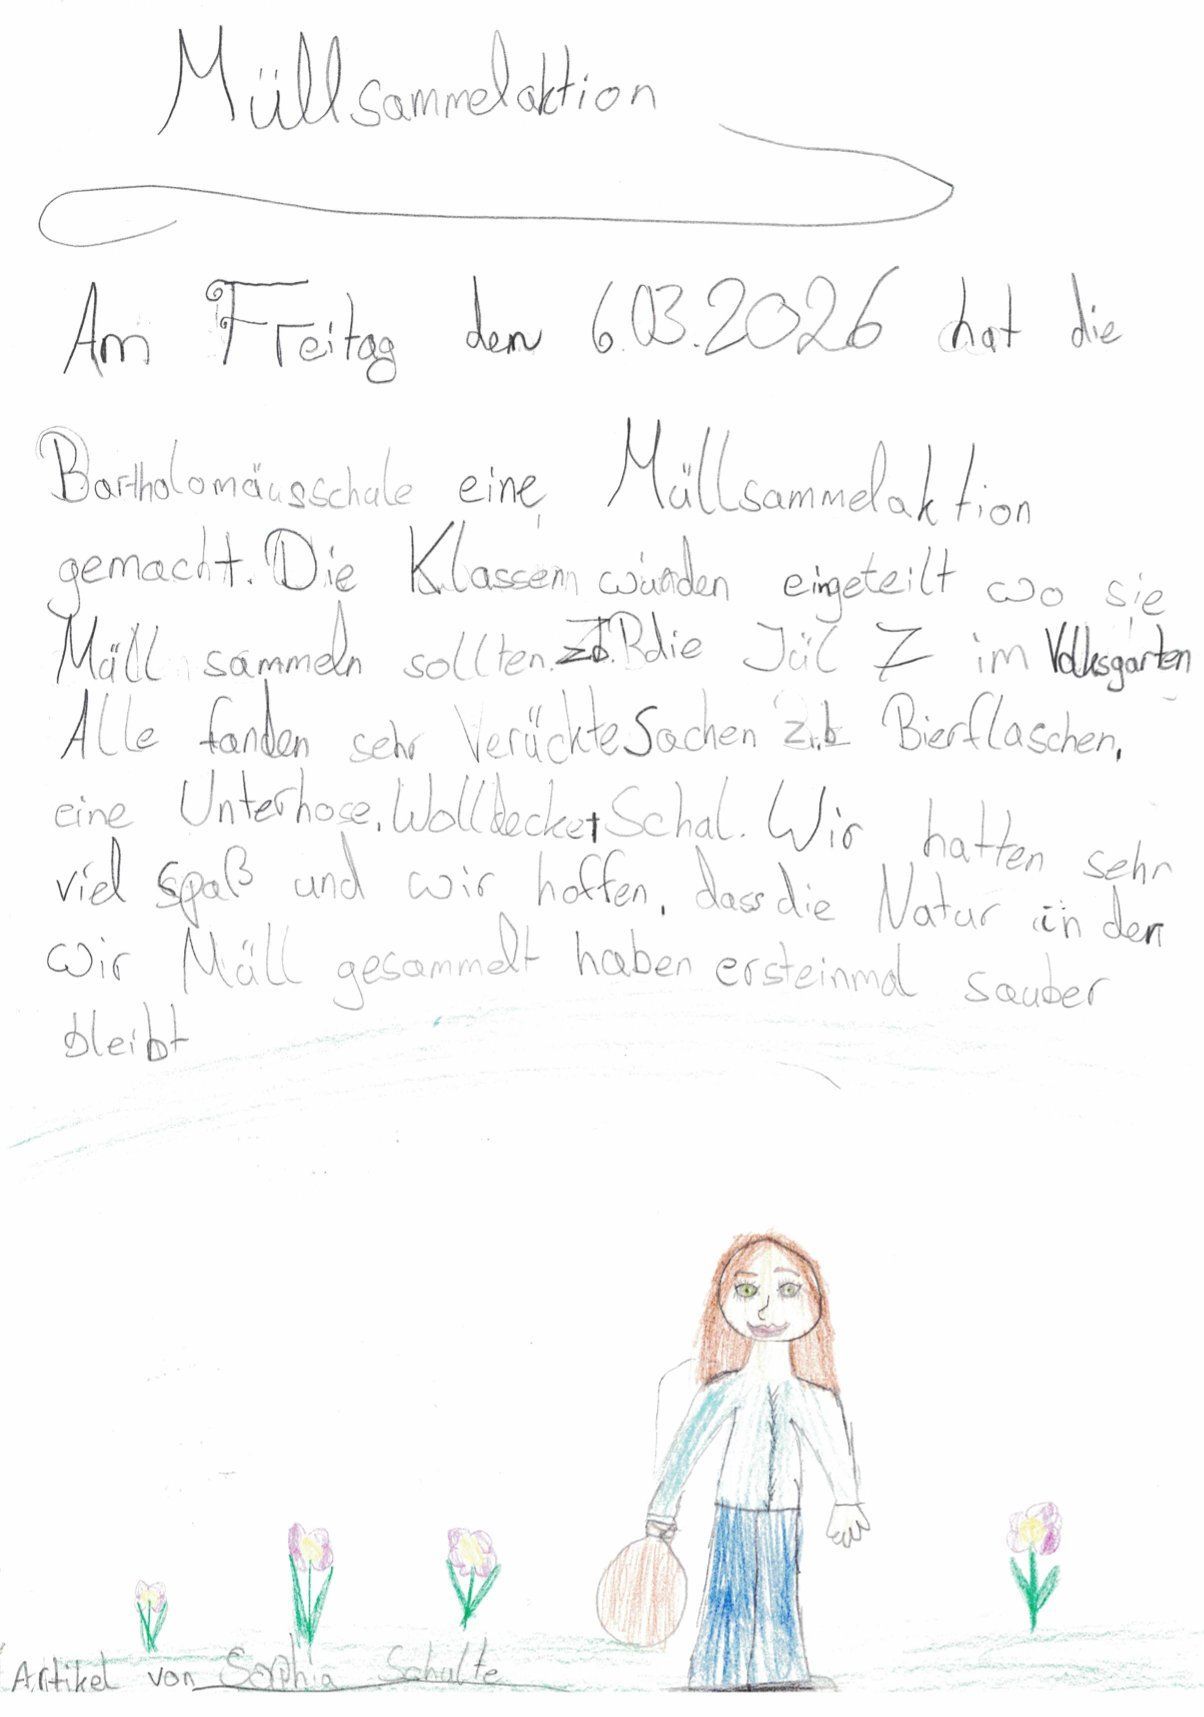 Müllsammelaktion
Am Freitag den 6.03.2026 hat die
Bartholomäusschule eine Müllsammelaktion
gemacht. Die Klassen wurden eingeteilt wo sie
Müll sammeln sollten. z.B. die Jül 7 im Volksgarten
Alle fanden sehr Verückte Sachen z.b Bierflaschen,
eine Unterhose, Wolldecke+Schal. Wir hatten sehr
viel spaß und wir hoffen, dass die Natur in der
wir Müll gesammelt haben ersteinmal sauber
bleibt
Artikel von Sophia Schulte